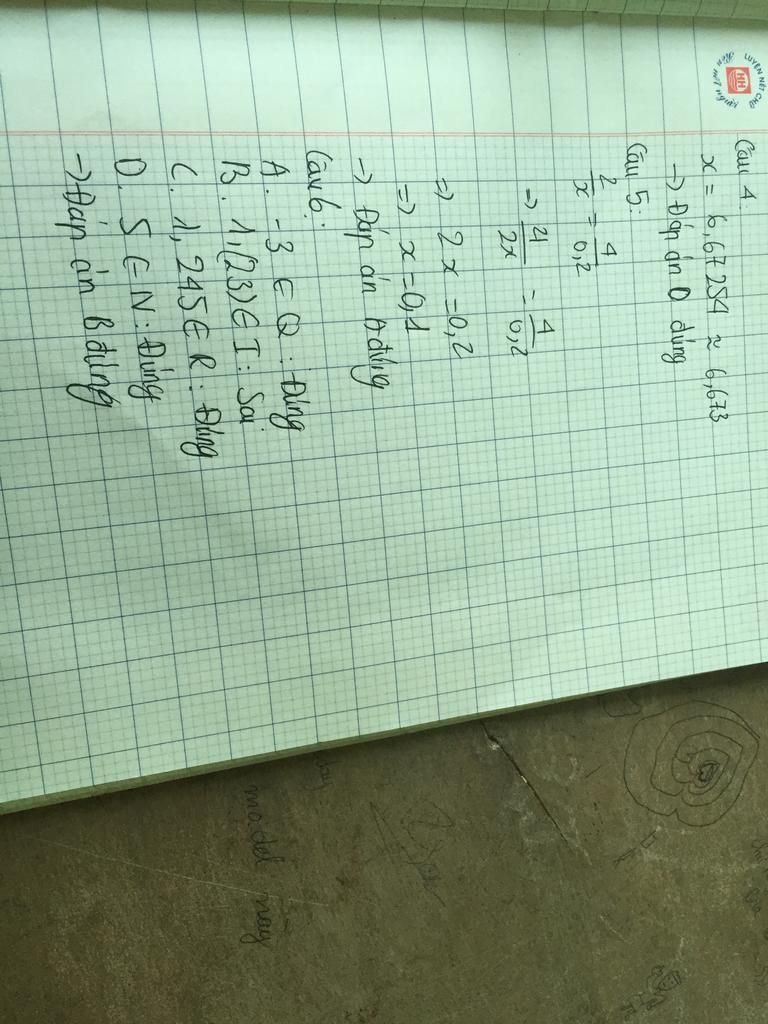 LUYỆN NÉT CHỮ
HH
Câu 4.
x = 6,67254 ≈ 6,673
→ Đáp án D đúng
Câu 5:
2/x = 4/0,2
→ 4/2x = 4/0,2
=> 2x = 0,2
=> x = 0,1
→ Đáp án A đúng
Câu 6:
A. -3 ∈ Q : Đúng
B. 1,(23) ∈ I : Sai
C. 1,245 ∈ R : Đúng
D. 5 ∈ N : Đúng
→ Đáp án B đúng
model này